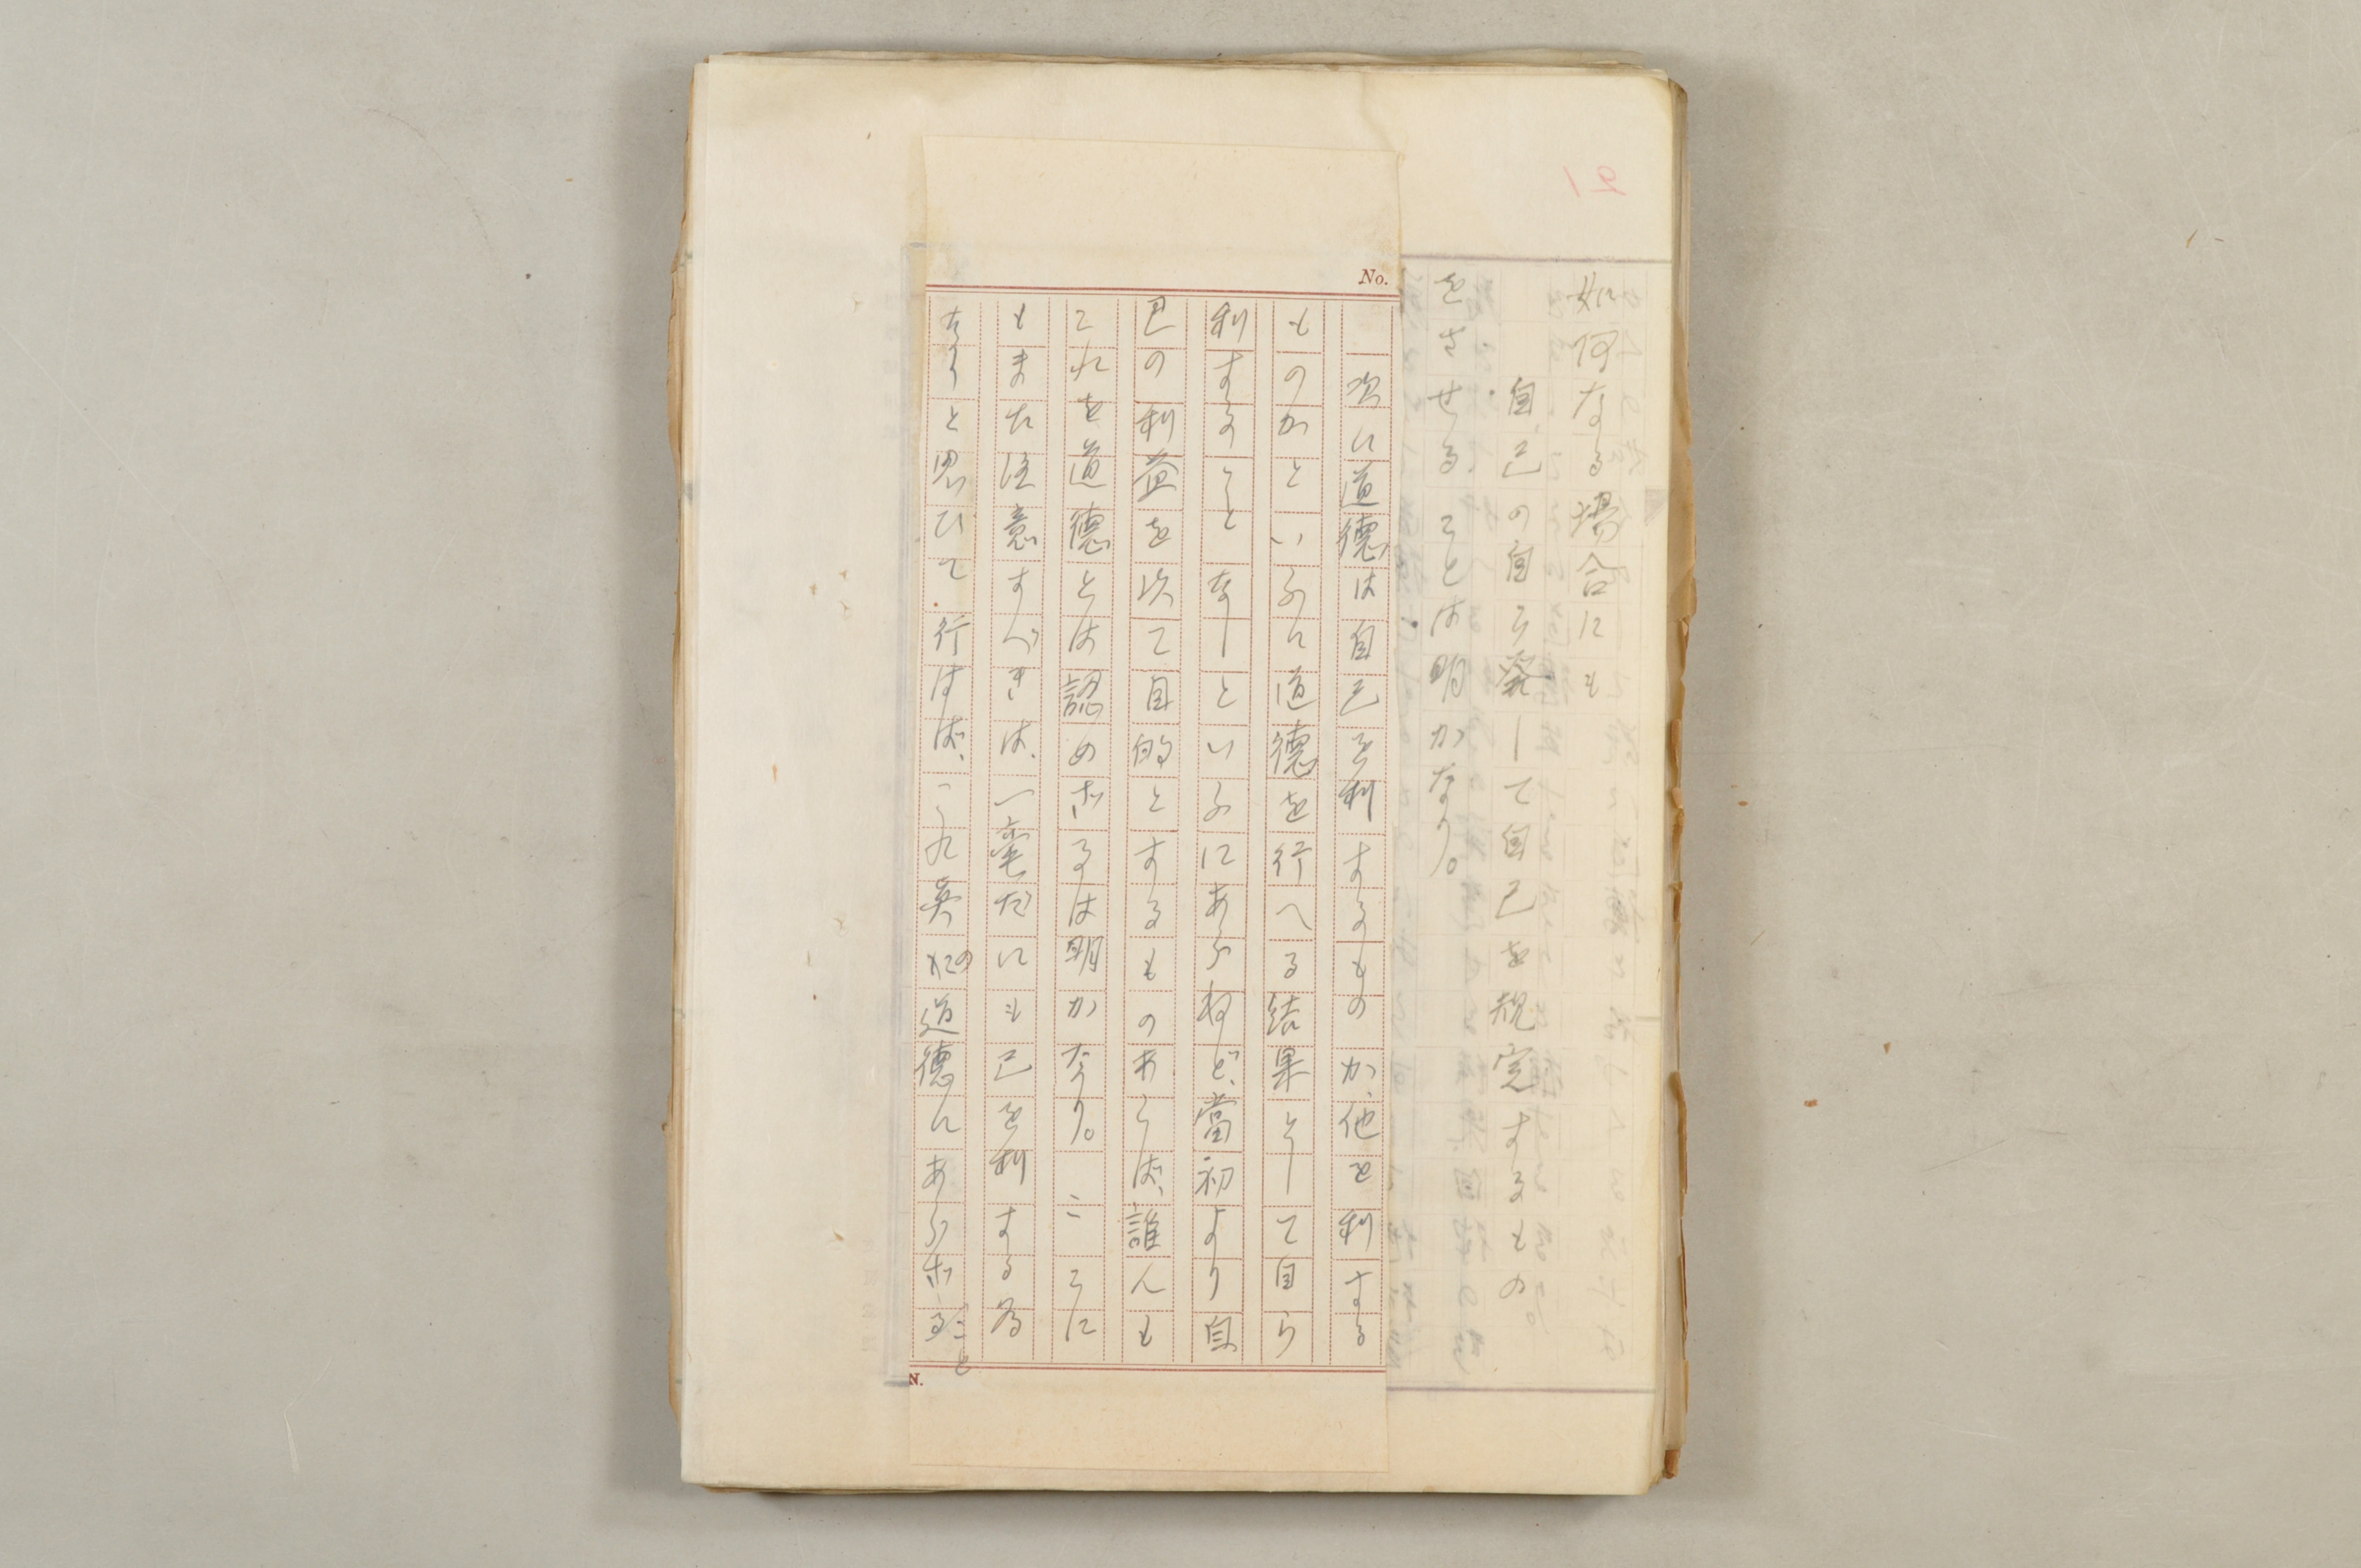 如何なる場合にも
自己の自ら発して自己を規定するもの
をさせることは明かなり。
No.
次に道德は自己を利するものか、他を利する
ものかといふに道德を行へる結果として自ら
利することなしといふにあらねど、當初より自
己の利益を以て目的とするものあらば、誰人も
これを道德とは認めざるは明かなり。こゝに
もまた注意すべきは、一毫だにも己を利する為
なりと思ひて行はば、これ眞の道德にあらざること
N.